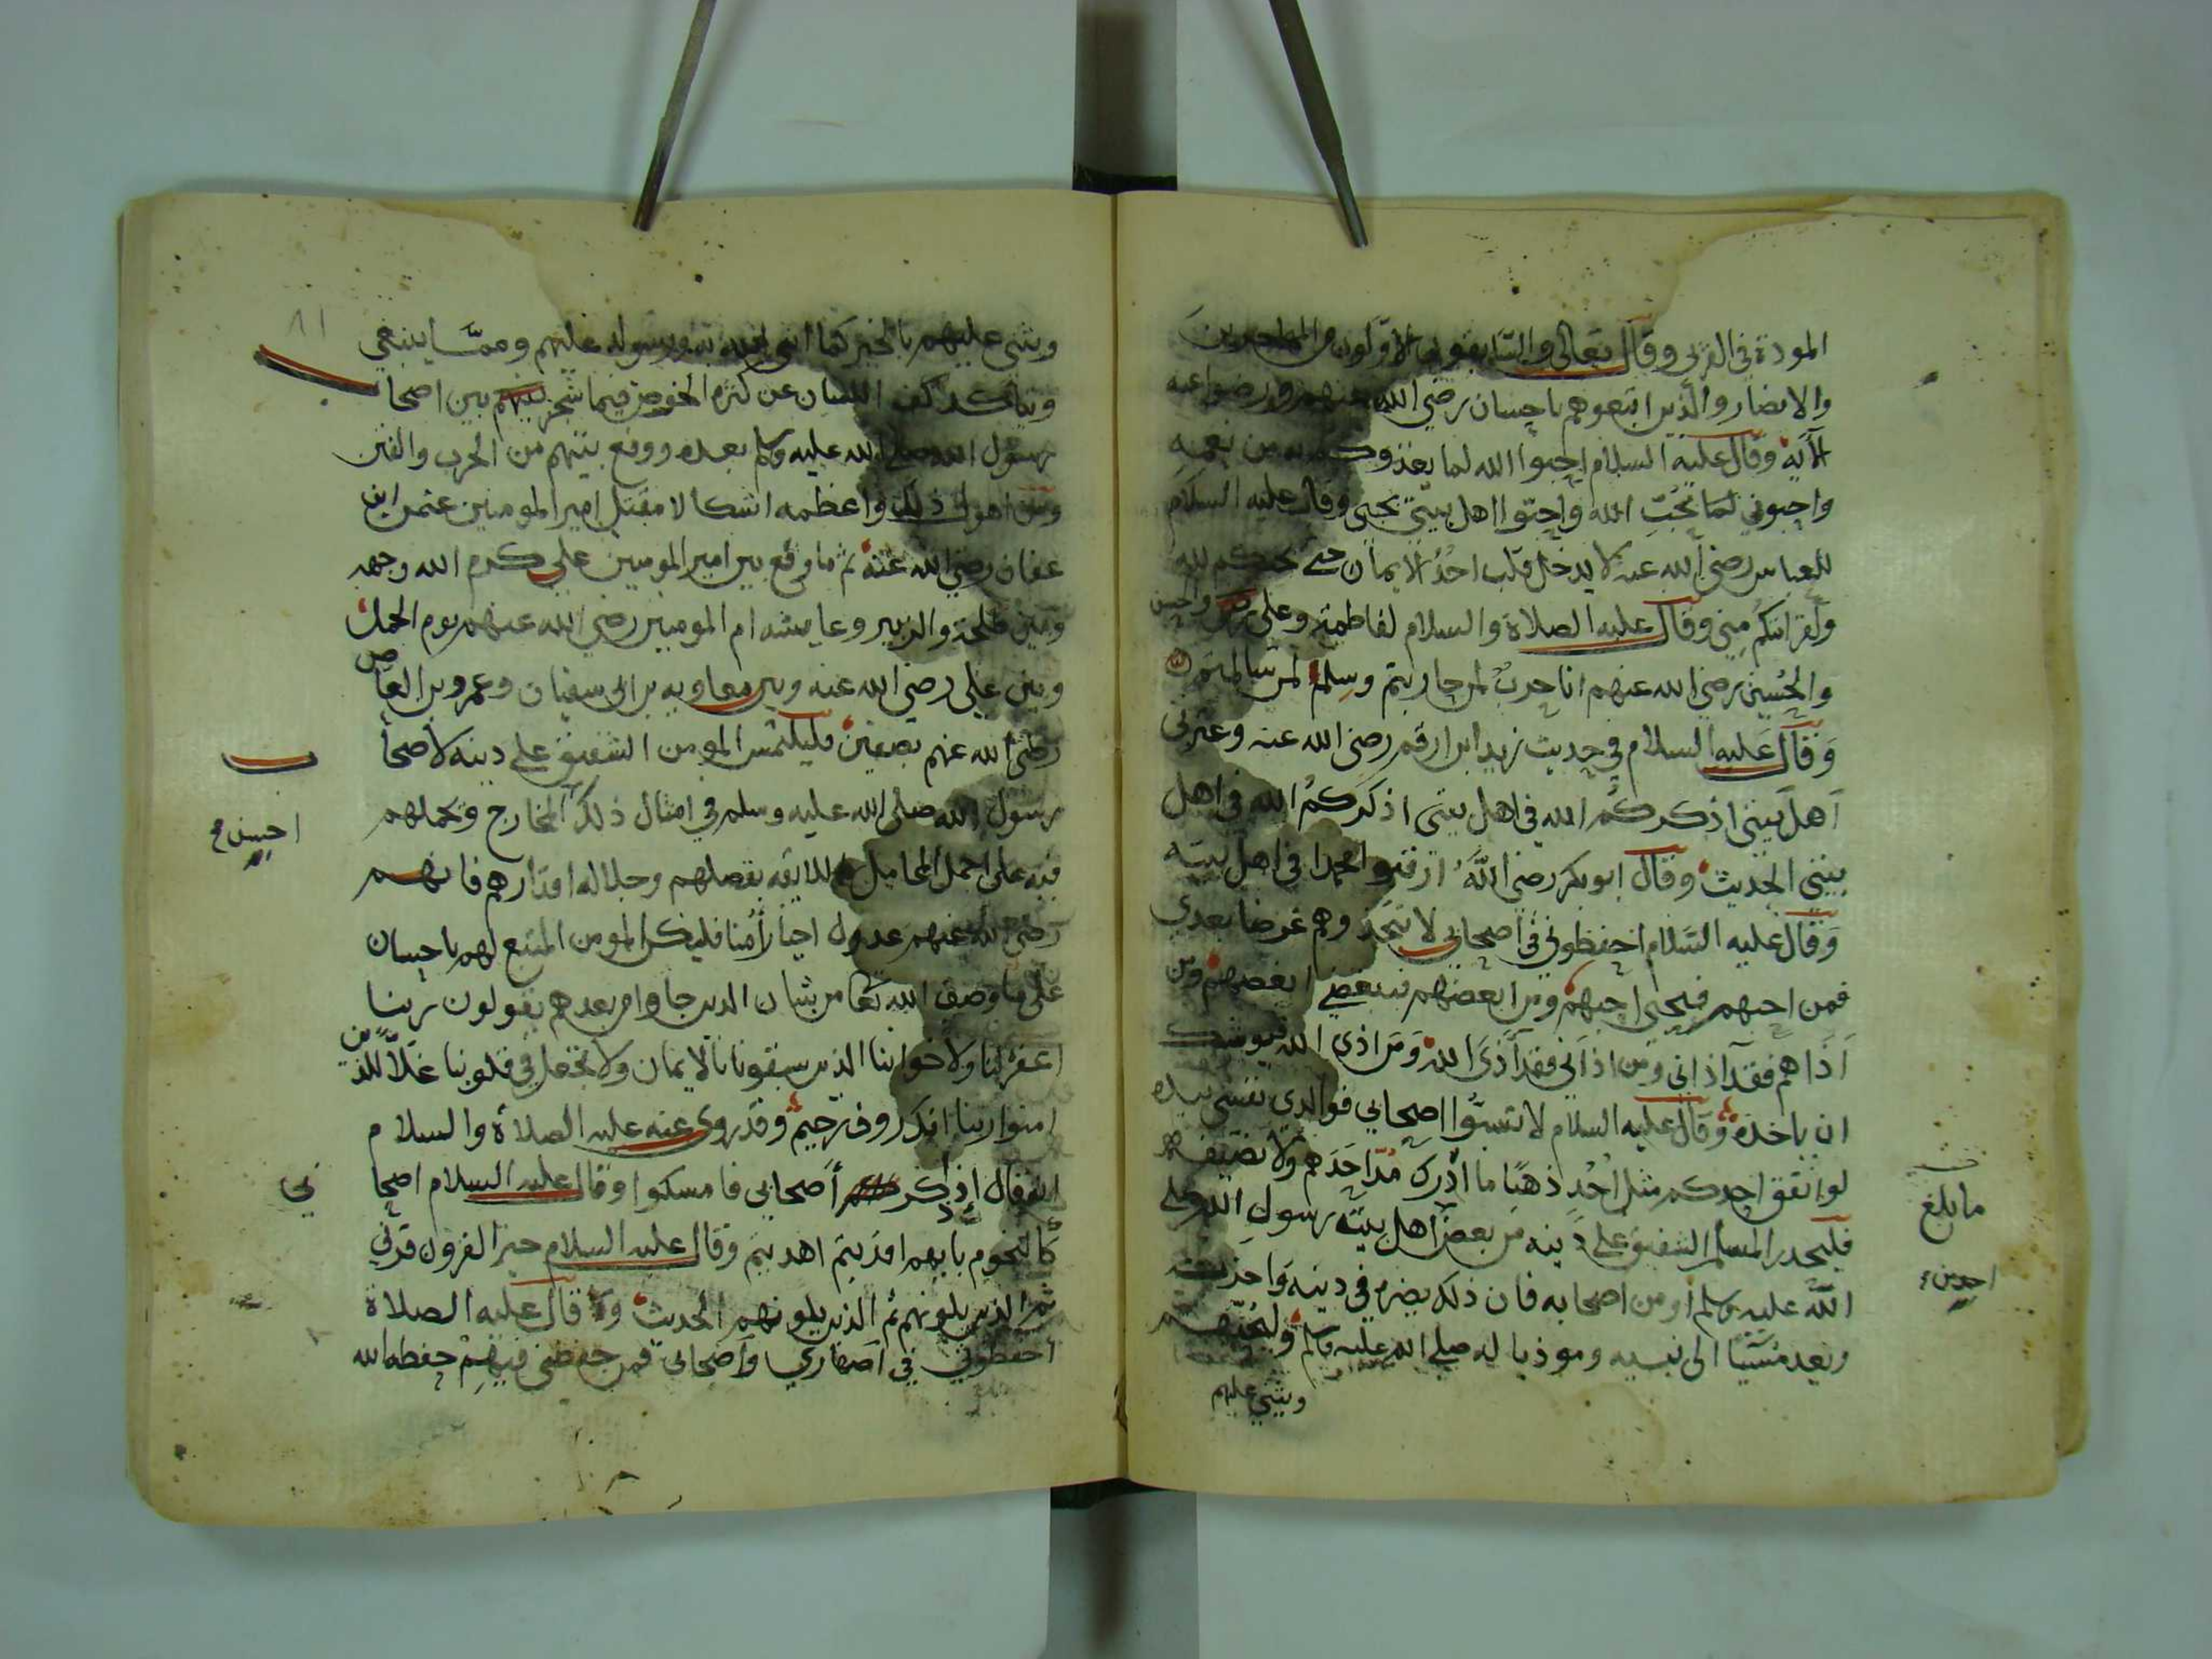 المودة في القربى وقال تعالى والسابقون الأولون من المهاجرين
والانصار والذين اتبعوهم باحسان رضي الله عنهم ورضوا عنه
الآية وقال عليه السلام احبوا الله لما يغذوكم به من نعمه
واحبوني لما تحب الله واحبوا اهل بيتي بحبي وقال عليه السلام
للعباس رضي الله عنه لا يدخل قلب احد الايمان حتى يحبكم لله
ولقرابتكم مني وقال عليه الصلاة والسلام لفاطمة وعلي والحسن
والحسين رضي الله عنهم انا حرب لمن حاربتم وسلم لمن سالمتم
وقال عليه السلام في حديث زيد ابن ارقم رضي الله عنه وعترتي
اهل بيتي اذكركم الله في اهل بيتي اذكركم الله في اهل
بيتي الحديث وقال ابو بكر رضي الله ارقبوا محمدا في اهل بيته
وقال عليه السلام احفظوني في اصحابي لا تتخذوهم غرضا بعدي
فمن احبهم فبحبي احبهم ومن ابغضهم فببغضي ابغضهم ومن
آذاهم فقد آذاني ومن اذاني فقد آذى الله ومن اذى الله فيوشك
ان ياخذه وقال عليه السلام لا تسبوا اصحابي فوالذي نفسي بيده
لو انفق احدكم مثل احد ذهبا ما ادرك مد احدهم ولا نصيفه
فليحذر المسلم الشفيق على دينه من بعض اهل بيت رسول الله صلى
الله عليه وسلم او من اصحابه فان ذلك يضره في دينه واخرته
ويعد مسيئا الى نبيه وموذيا له صلى الله عليه وسلم وليحبهم
ويثني عليهم
ما بلغ
٨١
ويثني عليهم بالخير كما اثنى الله ورسوله عليهم ومما ينبغي
ويتاكد كف اللسان عن كثرة الخوض فيما شجر بين اصحاب
رسول الله صلى الله عليه وسلم بعده ووقع بينهم من الحرب والفتن
ومن اهول ذلك واعظمه اشكالا مقتل امير المومنين عثمن ابن
عفان رضي الله عنه ثم ما وقع بين امير المومنين علي كرم الله وجهه
وبين طلحة والزبير وعايشه ام المومنين رضي الله عنهم يوم الجمل
وبين علي رضي الله عنه وبين معاويه بن ابي سفيان وعمرو بن العاص
رضي الله عنهم بصفين فليلتمس المومن الشفيق على دينه لأصحا
ب
رسول الله صلى الله عليه وسلم في امثال ذلك المخارج وتحملهم
احسن
فيه على اجمل المحامل اللايقه بفضلهم وجلاله اقدارهم فانهم
رضي الله عنهم عدول اخيار أمنا فليذكر المومن المتبع لهم باحسان
على ما وصف الله تعا من شان الذين جاوا من بعدهم يقولون ربنا
اغفر لنا ولاخواننا الذين سبقونا بالايمان ولا تجعل في قلوبنا غلا للذين
امنوا ربنا انك روف رحيم وقد روى عنه عليه الصلاة والسلام
انه قال إذا ذكر أصحابي فامسكوا وقال عليه السلام اصحا
بي
كالنجوم بايهم اقتديتم اهديتم وقال عليه السلام خير القرون قرني
ثم الذين يلونهم ثم الذين يلونهم الحديث وقال عليه الصلاة
احفظوني في اصهاري واصحابي فمن حفظني فيهم حفظه الله